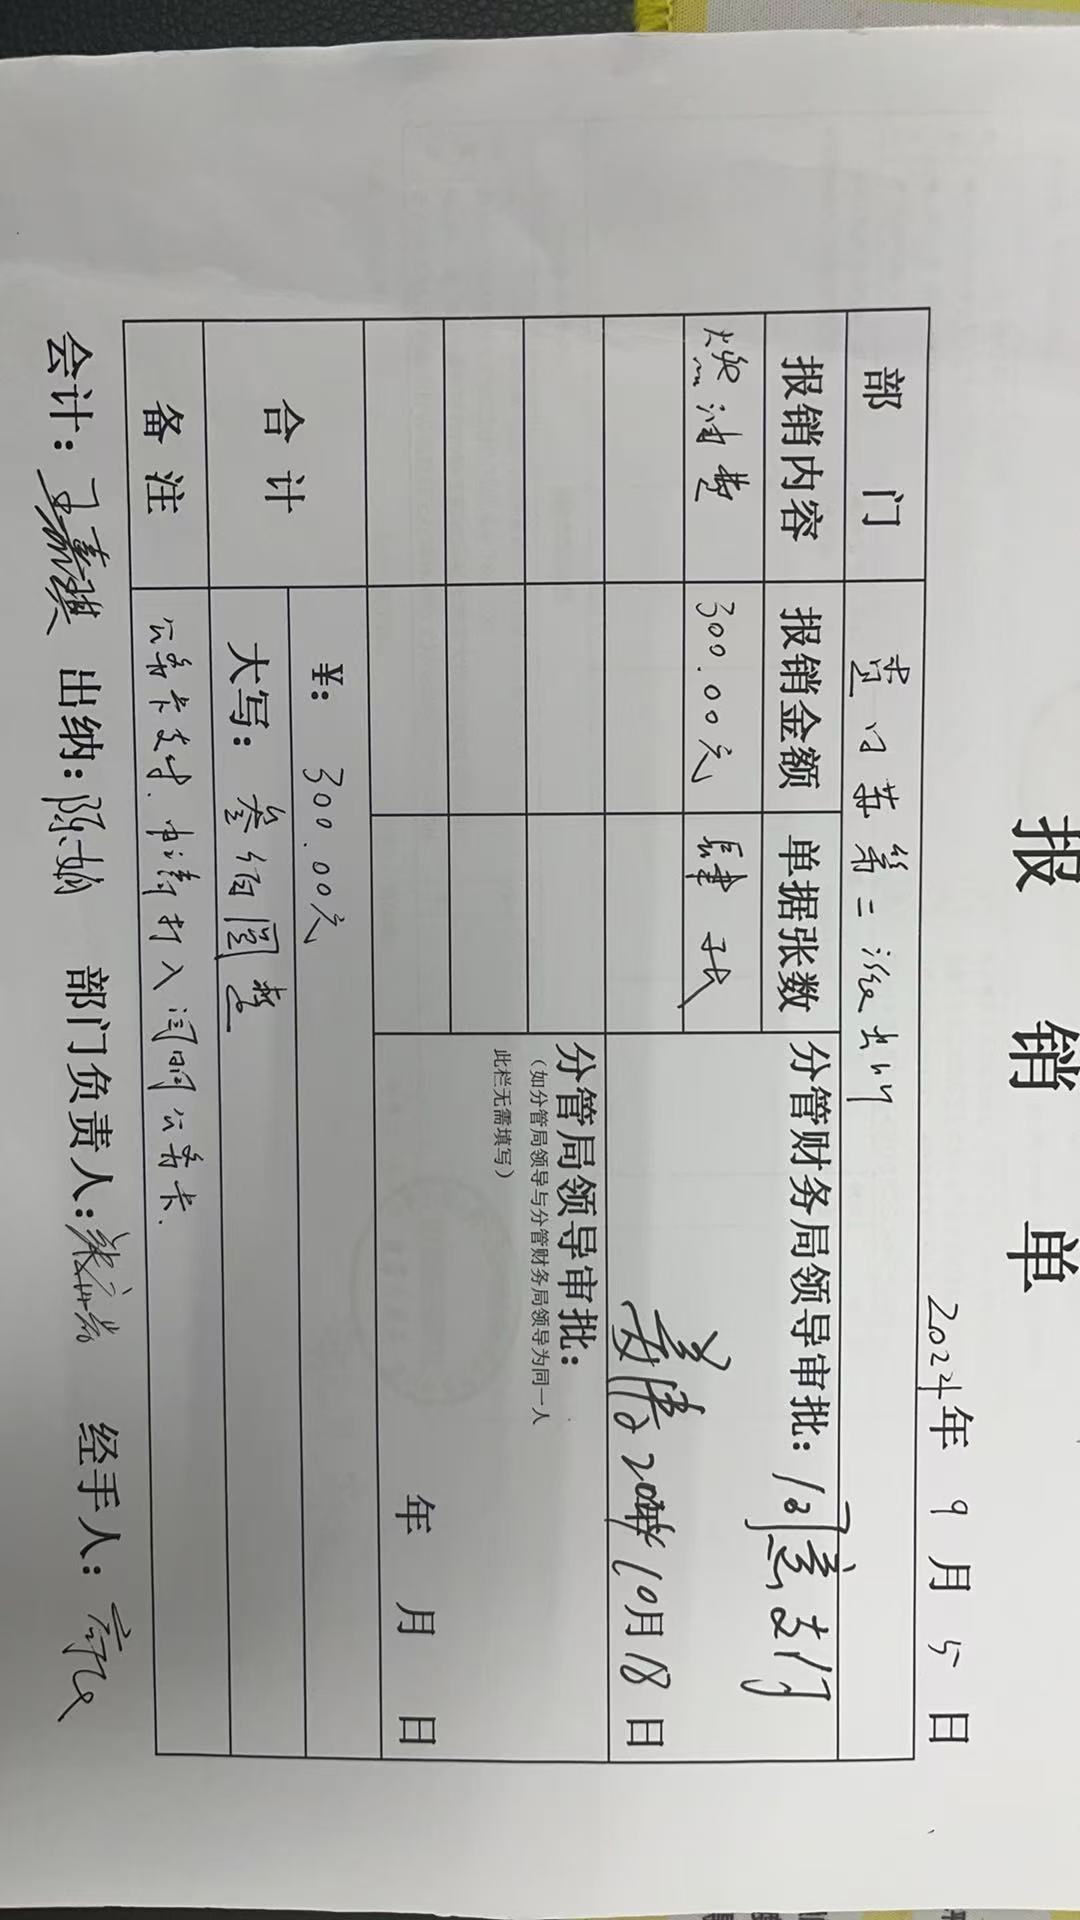 报 销 单
2024年 9 月 5 日
部 门
报销内容 报销金额 单据张数 分管财务局领导审批：同意支付
燃油费 300.00元 肆张
2024年10月18日
分管局领导审批：
（如分管局领导与分管财务局领导为同一人
此栏无需填写）
年 月 日
合 计 ¥： 300.00元
大写： 叁佰圆整
备 注 公务卡支付，申请打入闫明公务卡.
会计： 王嘉骐 出纳：陈娟 部门负责人： 经手人：